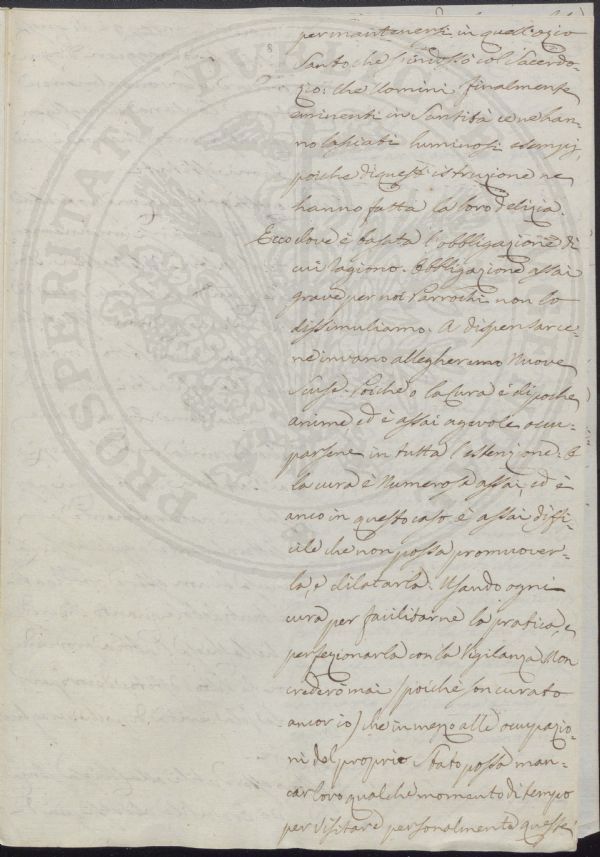 per mantenersi in quell'ozio
Santo che s'indossò col Sacerdo-
zio: che Uomini finalmente
eminenti in Santità ce ne han-
no lasciati luminosi esempj,
poiche di queste istruzione ne
hanno fatta la loro delizia.
Ecco dove è basata l'obbligazione di
cui ragiono. Obbligazione assai
grave per noi Parrochi non lo
dissimuliamo. A dispensarce-
ne invano allegheremo nuove
scuse. Poiche o la Cura è di poche
anime ed è assai agevole occu-
parsene in tutta l'estenzione. O
la cura è numerosa assai, ed è
anco in questo caso è assai diffi-
cile che non possa promuover-
la, e dilatarla. Usando ogni
cura per facilitarne la pratica, e
perfezionarla con la Vigilanza. Non
crederò mai (poiché son curato
ancor io) che in mezo alle ocupazio-
ni del proprio Stato possa man-
car loro qualche momento di tempo
per visitare personalmente queste
PROSPERITATI PUBLICAE